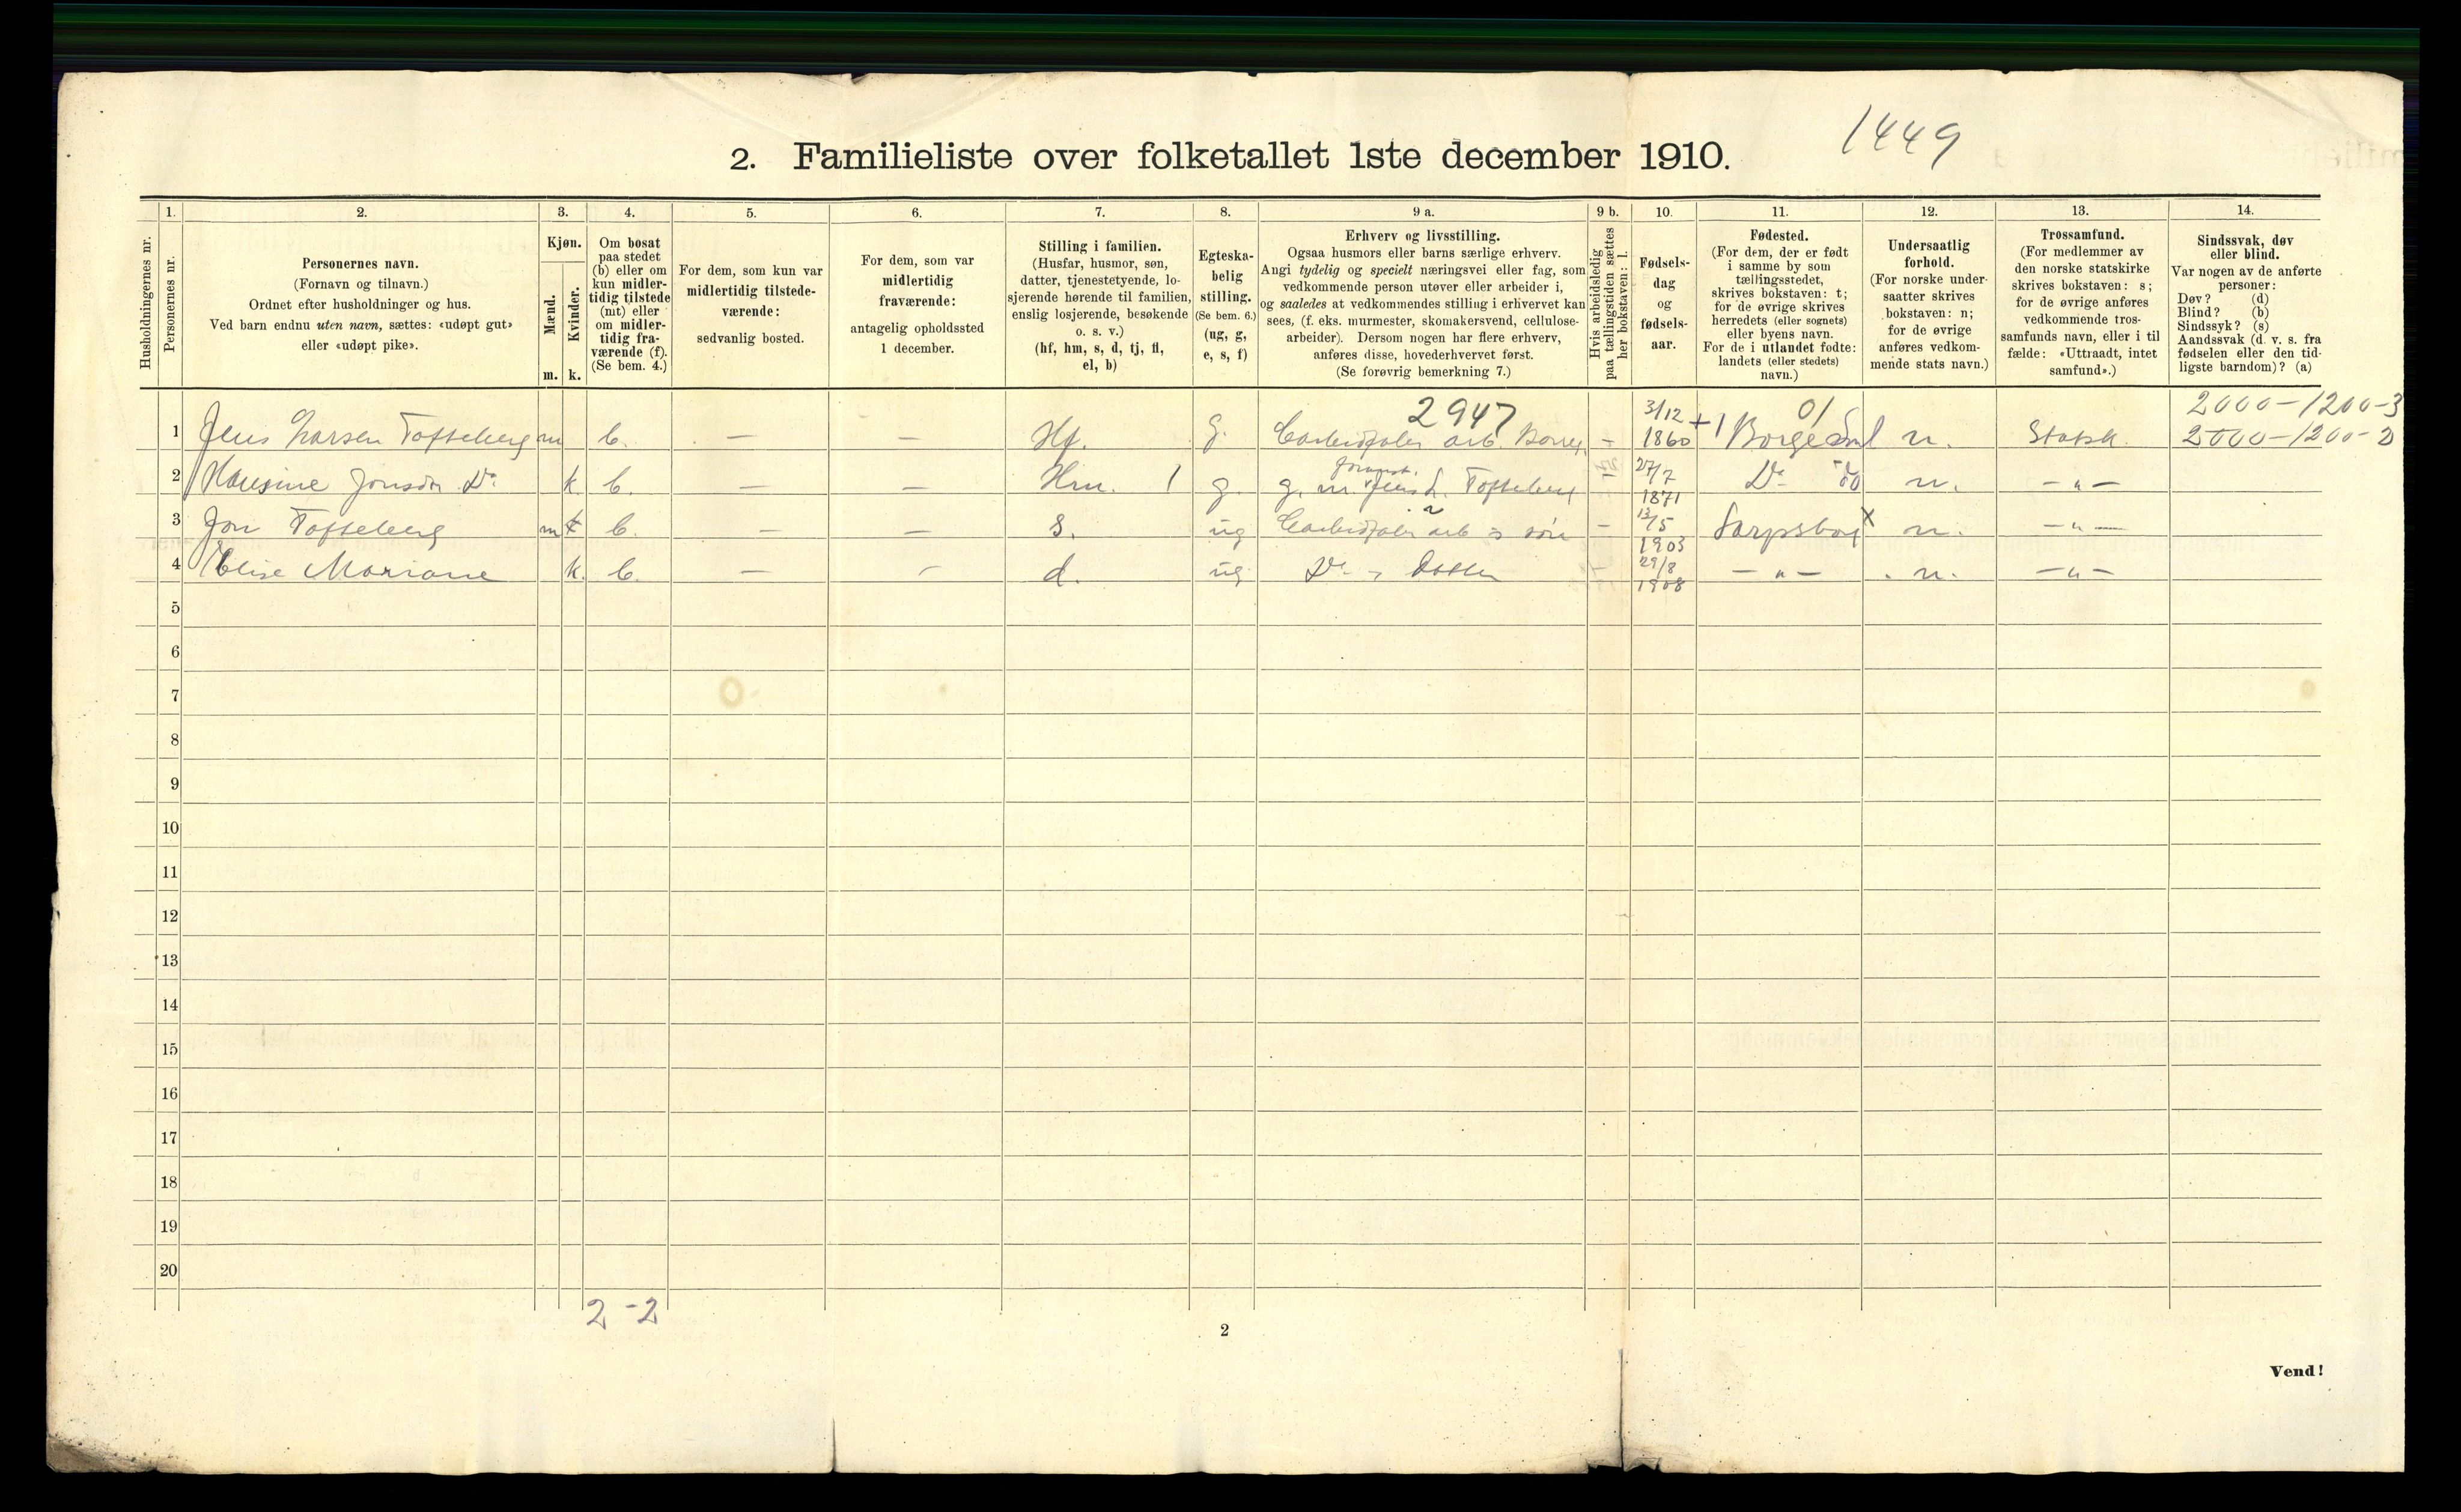 1449
2. Familieliste over folketallet 1ste december 1910.
Husholdningernes nr.
1.
Personernes nr.
2.
Personernes navn.
(Fornavn og tilnavn.)
Ordnet efter husholdninger og hus.
Ved barn endnu uten navn, sættes: «udøpt gut»
eller «udøpt pike».
3.
Kjøn.
Mænd.
Kvinder.
m. k.
4.
Om bosat
paa stedet
(b) eller om
kun midler-
tidig tilstede
(mt) eller
om midler-
tidig fra-
værende (f).
(Se bem. 4.)
5.
For dem, som kun var
midlertidig tilstede-
værende:
sedvanlig bosted.
6.
For dem, som var
midlertidig
fraværende:
antagelig opholdssted
1 december.
7.
Stilling i familien.
(Husfar, husmor, søn,
datter, tjenestetyende, lo-
sjerende hørende til familien,
enslig losjerende, besøkende
o. s. v.)
(hf, hm, s, d, tj, fl,
el, b)
8.
Egteska-
belig
stilling.
(Se bem. 6.)
(ug, g,
e, s, f)
9 a.
Erhverv og livsstilling.
Ogsaa husmors eller barns særlige erhverv.
Angi tydelig og specielt næringsvei eller fag, som
vedkommende person utøver eller arbeider i,
og saaledes at vedkommendes stilling i erhvervet kan
sees, (f. eks. murmester, skomakersvend, cellulose-
arbeider). Dersom nogen har flere erhverv,
anføres disse, hovederhvervet først.
(Se forøvrig bemerkning 7.)
9 b.
Hvis arbeidsledig
paa tællingstiden sættes
her bokstaven: l.
10.
Fødsels-
dag
og
fødsels-
aar.
11.
Fødested.
(For dem, der er født
i samme by som
tællingsstedet,
skrives bokstaven: t;
for de øvrige skrives
herredets (eller sognets)
eller byens navn.
For de i utlandet fødte:
landets (eller stedets)
navn.)
12.
Undersaatlig
forhold.
(For norske under-
saatter skrives
bokstaven: n;
for de øvrige
anføres vedkom-
mende stats navn.)
13.
Trossamfund.
(For medlemmer av
den norske statskirke
skrives bokstaven: s;
for de øvrige anføres
vedkommende tros-
samfunds navn, eller i til
fælde: «Uttraadt, intet
samfund».)
14.
Sindssvak, døv
eller blind.
Var nogen av de anførte
personer:
Døv? (d)
Blind? (b)
Sindssyk? (s)
Aandssvak (d. v. s. fra
fødselen eller den tid-
ligste barndom)? (a)
2947 3/12 01 2000-1200-3
1 Jens Larsen Tofteberg m b. — — Hf. g. arb. – 1860 +1 Borge n. Statsk. 2000-1200-2
2 Jonsdr Do k. b. — — Hm. 1 g. g. m. Jens L. Tofteberg – 27/7 1871 Do do n. — " —
3 Jon Tofteberg m k b. — — S. ug arb søn – 13/5 1903 Sarpsborg x n. — " —
4 Elise Mariane k. b. — – d. ug. Do , datter 29/8 1908 — " — n. — " —
5
6
7
8
9
10
11
12
13
14
15
16
17
18
19
20
2 - 2
2
Vend!